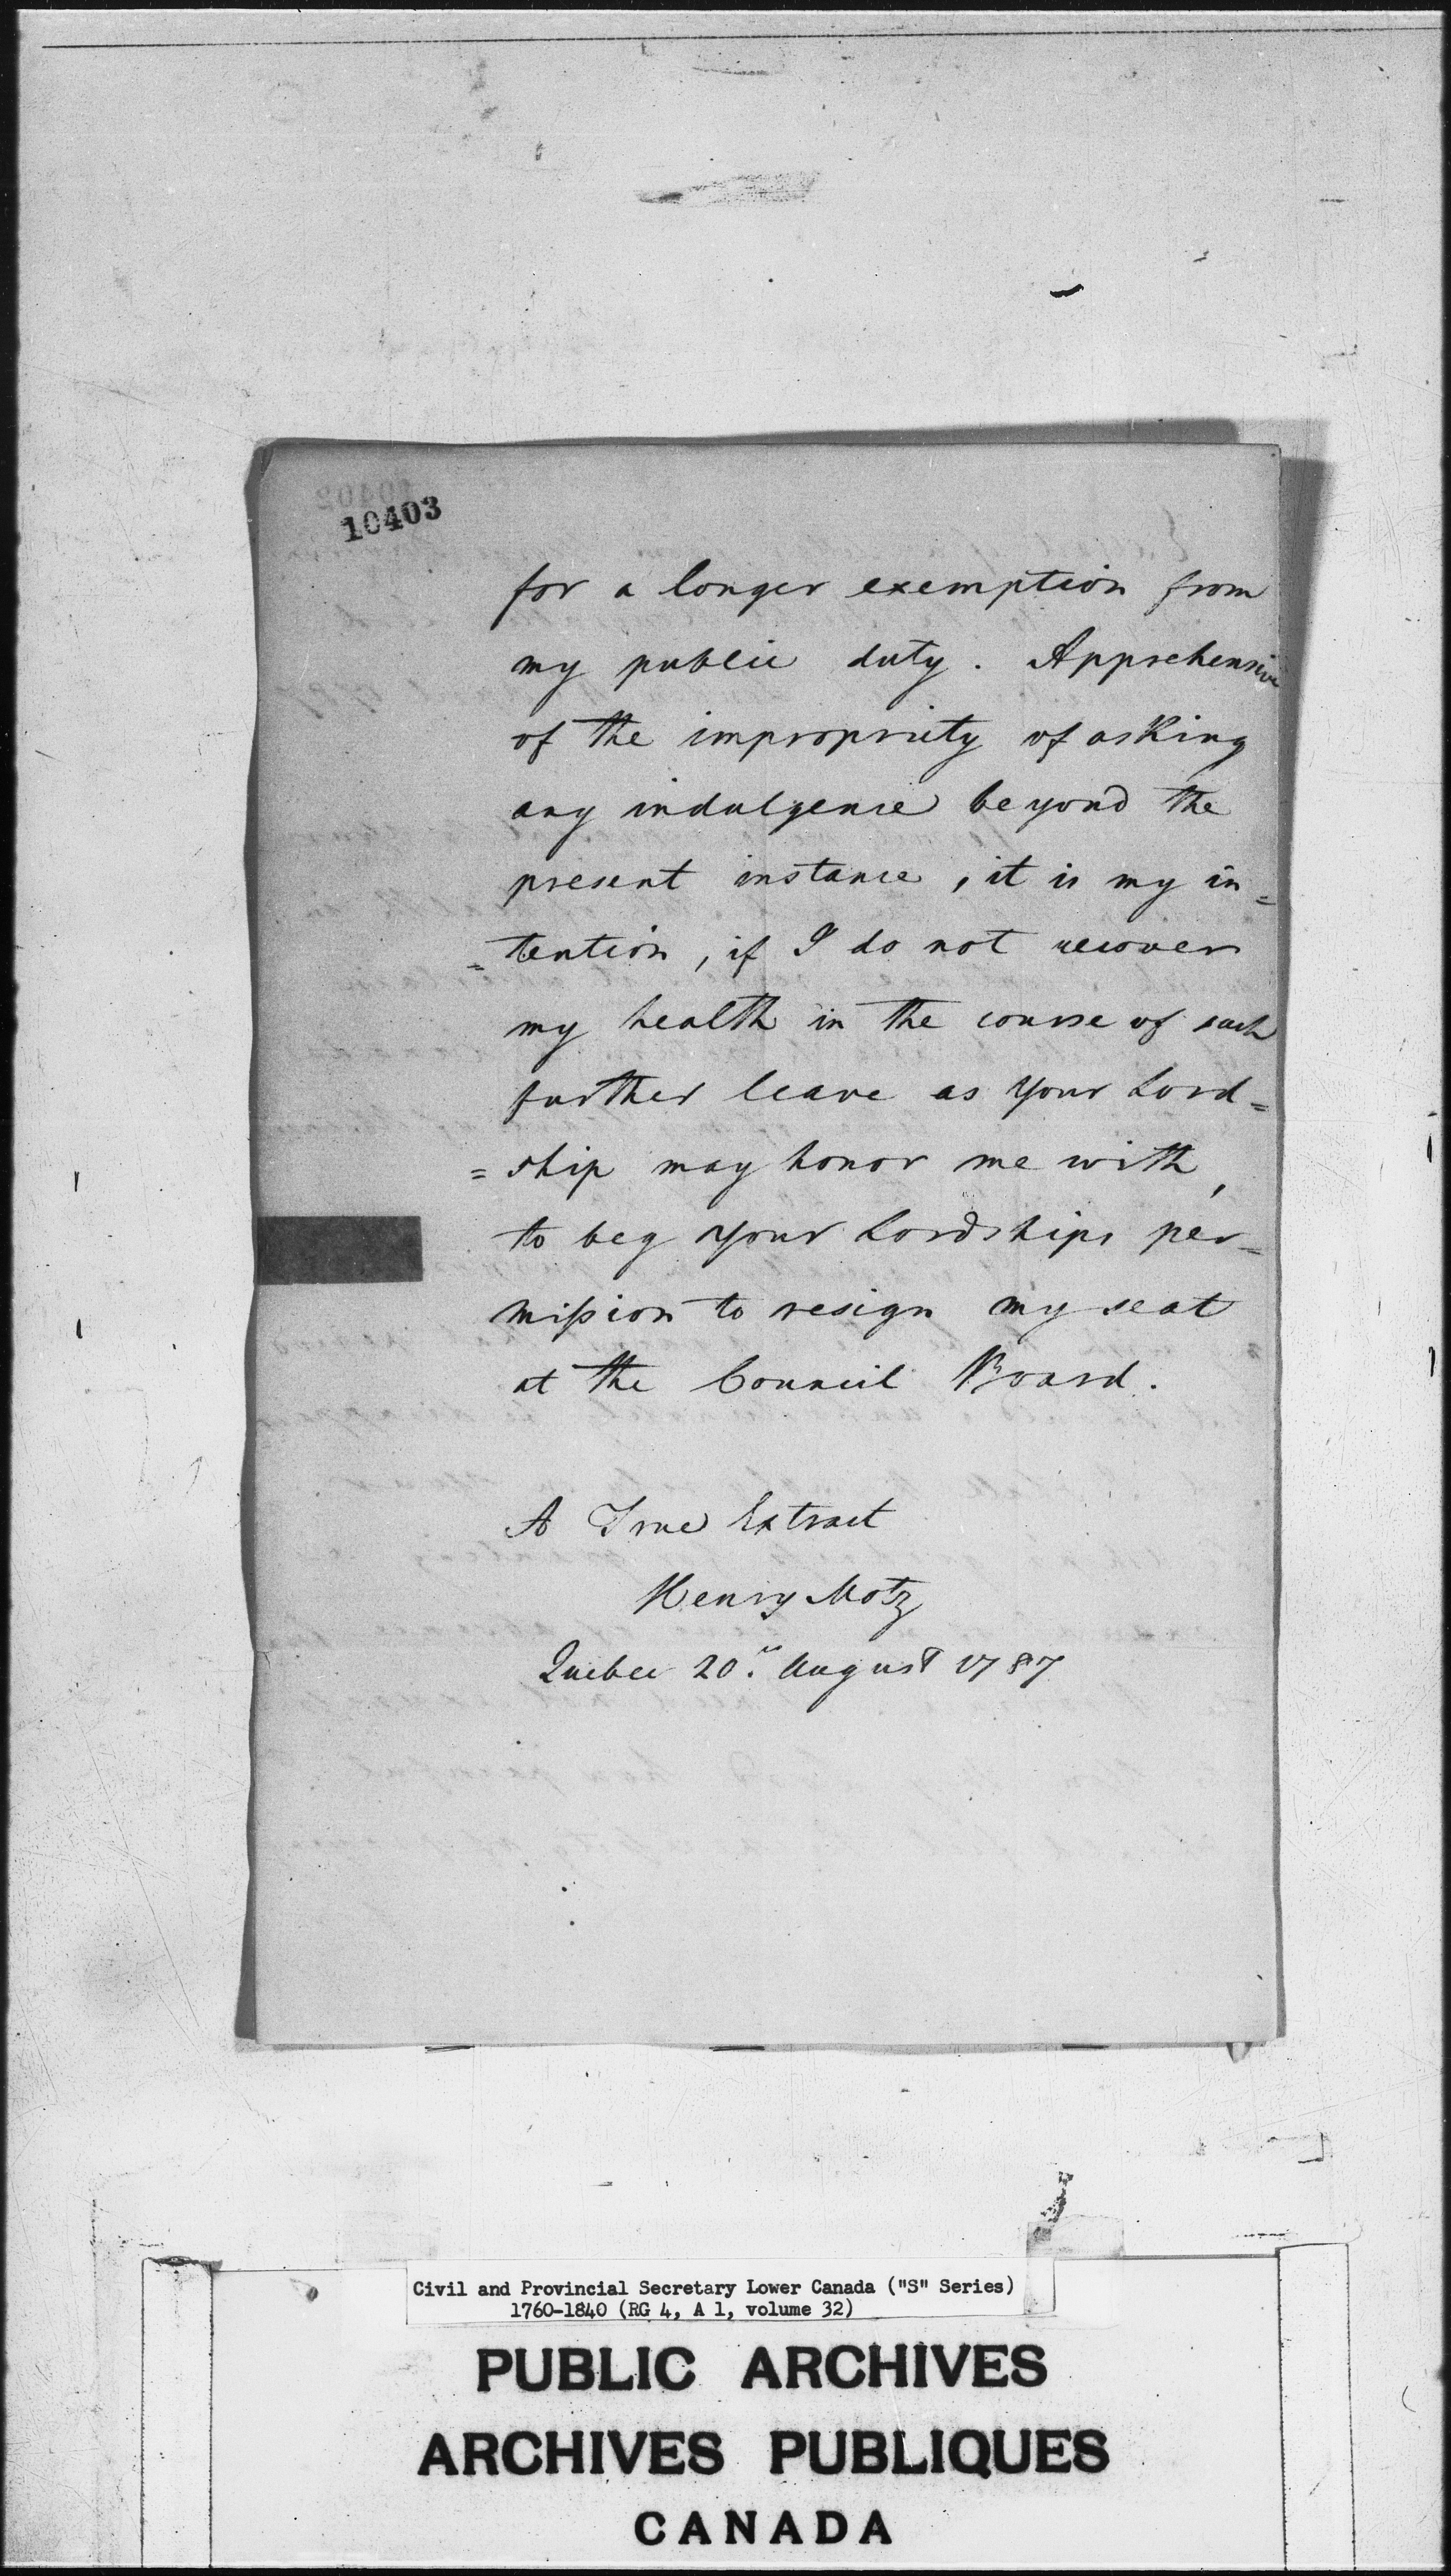 10403
for a longer exemption from
my public duty. Apprehensive
of the impropriety of asKing
any indulgence beyond the
present instance, it is my in=
=tention, if I do not recover
my health in the course of such
further leave as your Lord=
=ship may honor me with,
to beg your Lordships per=
mission to resign my seat
at the Council Board.
A True Extract
Henry Motz
Quebec 20.th August 1787
Civil and Provincial Secretary Lower Canada ("S" Series)
1760-1840 (RG 4, A 1, volume 32)
PUBLIC ARCHIVES
ARCHIVES PUBLIQUES
CANADA